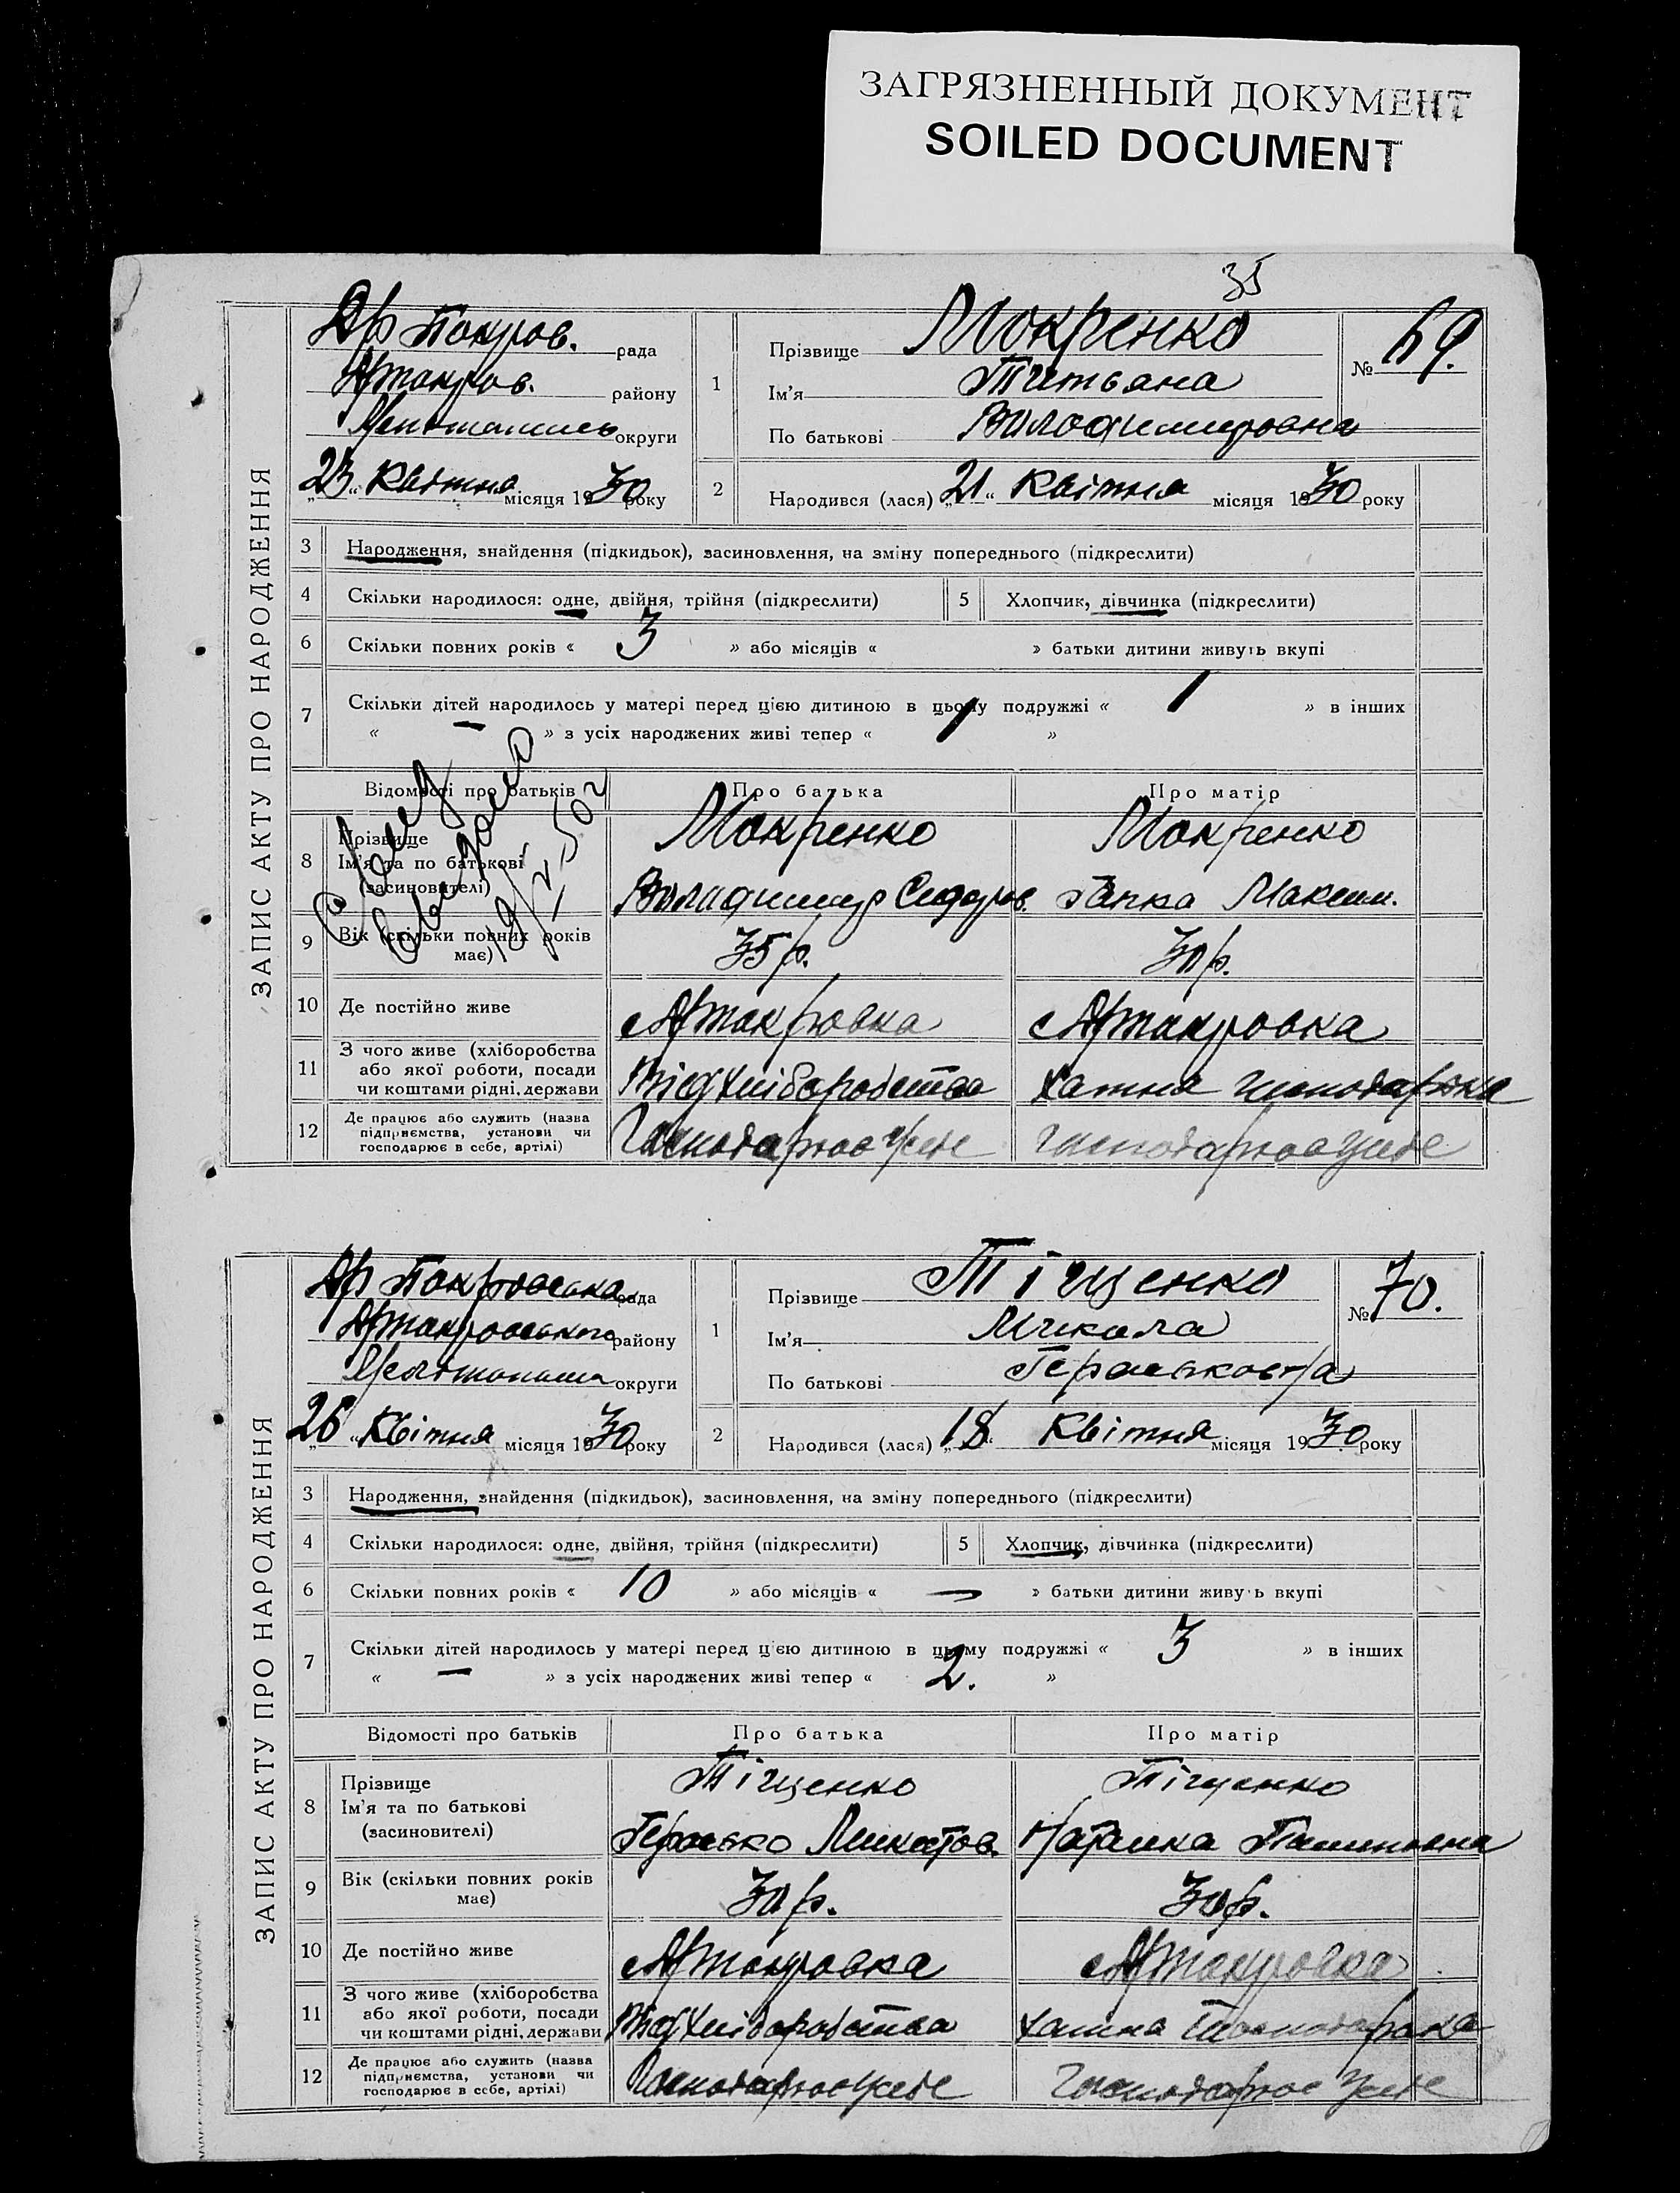 ЗАГРЯЗНЕННЫЙ ДОКУМЕНТ
SOILED DOCUMENT
35
ЗАПИС АКТУ ПРО НАРОДЖЕННЯ
Покров. рада
району
округи
„23“ Квітня місяця 1930 року
1 Прізвище Мокренко № 69.
Ім'я Титьяна
По батькові Володимировна
2 Народився (лася) „21“ Квітня місяця 1930 року
3 Народження, знайдення (підкидьок), засиновлення, на зміну попереднього (підкреслити)
4 Скільки народилося: одне, двійня, трійня (підкреслити) 5 Хлопчик, дівчинка (підкреслити)
6 Скільки повних років « 3 » або місяців « » батьки дитини живуть вкупі
7 Скільки дітей народилось у матері перед цією дитиною в цьому подружжі « 1 » в інших
« — » з усіх народжених живі тепер « 1 »
Відомості про батьків Про батька Про матір
8 Прізвище Мокренко Мокренко
Ім'я та по батькові
(засиновителі) Володимир Сидоров. Гапка Максим.
9 Вік (скільки повних років має) 35 р. 30 р.
10 Де постійно живе
11 З чого живе (хліборобства
або якої роботи, посади
чи коштами рідні, держави Від хліборобства хатня
12 Де працює або служить (назва
підприємства, установи чи
господарює в себе, артілі) Господарює у себе Господарює у себе
ЗАПИС АКТУ ПРО НАРОДЖЕННЯ
Покровська рада
району
округи
„26“ Квітня місяця 1930 року
1 Прізвище Тіщенко № 70.
Ім'я Микола
По батькові
2 Народився (лася) „18“ Квітня місяця 1930 року
3 Народження, знайдення (підкидьок), засиновлення, на зміну попереднього (підкреслити)
4 Скільки народилося: одне, двійня, трійня (підкреслити) 5 Хлопчик, дівчинка (підкреслити)
6 Скільки повних років « 10 » або місяців « — » батьки дитини живуть вкупі
7 Скільки дітей народилось у матері перед цією дитиною в цьому подружжі « 3 » в інших
« — » з усіх народжених живі тепер « 2. »
Відомості про батьків Про батька Про матір
8 Прізвище Тіщенко Тіщенко
Ім'я та по батькові
(засиновителі) Гераська
9 Вік (скільки повних років має) 30 р. 30 р.
10 Де постійно живе
11 З чого живе (хліборобства
або якої роботи, посади
чи коштами рідні, держави Від хліборобства хатня
12 Де працює або служить (назва
підприємства, установи чи
господарює в себе, артілі) Господарює у себе Господарює у себе